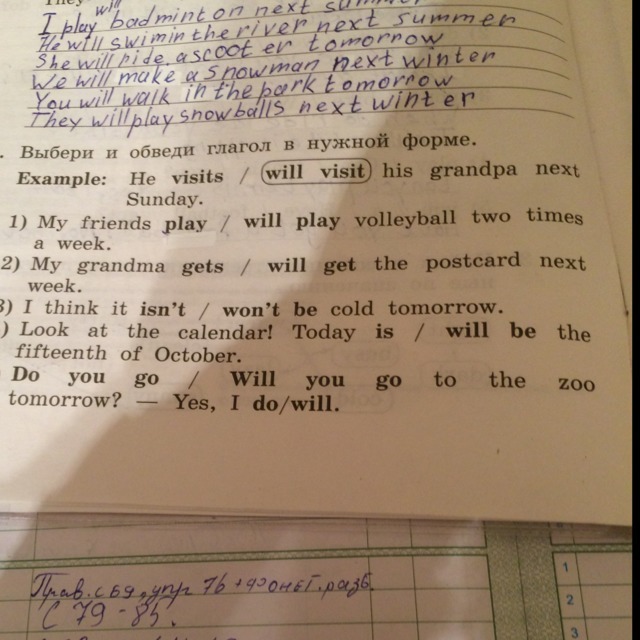 They
I play will badminton next summer
He will swim in the river next summer
She will ride a scooter tomorrow
We will make a snowman next winter
You will walk in the park tomorrow
They will play snowballs next winter
. Выбери и обведи глагол в нужной форме.
Example: He visits / will visit his grandpa next
Sunday.
1) My friends play / will play volleyball two times
a week.
2) My grandma gets / will get the postcard next
week.
3) I think it isn't / won't be cold tomorrow.
) Look at the calendar! Today is / will be the
fifteenth of October.
Do you go / Will you go to the zoo
tomorrow? — Yes, I do/will.
1
Прав. с 69, упр 76 + фонет. разб.
2
С 79 - 85.
3